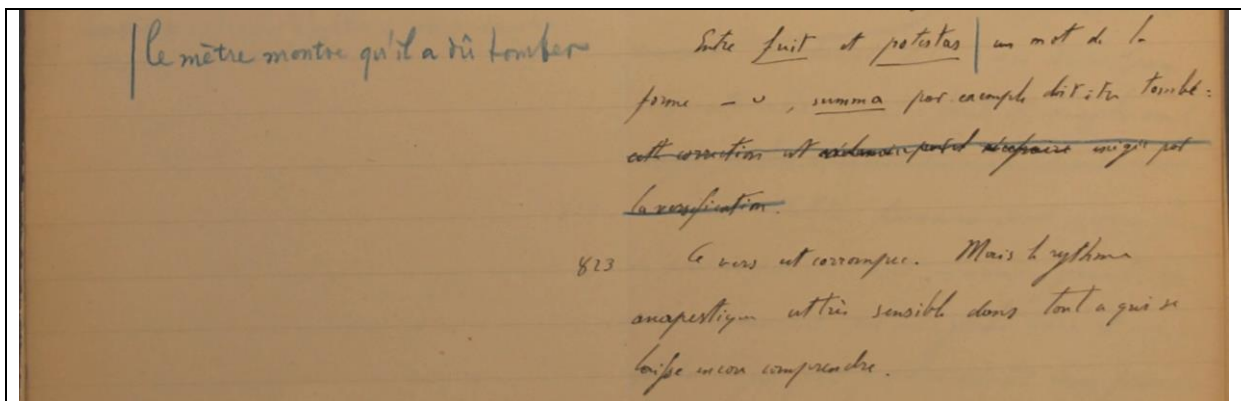 le mètre montre qu'il a dû tomber
Entre fuit et potestas | un mot de la
forme – ᴗ, summa par exemple doit être tombé :
cette correction est exigée par
la versification.
823 Ce vers est corrompu. Mais le rythme
anapestique est très sensible dans tout ce qui se
laisse encore comprendre.